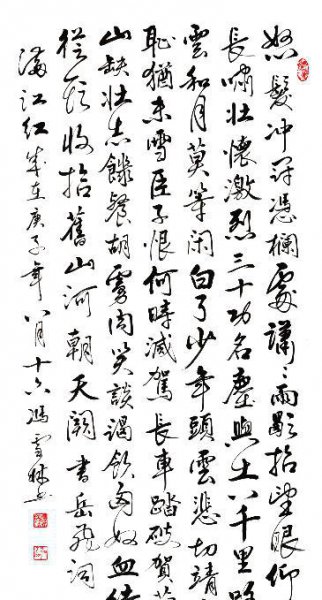 怒髮冲冠憑欄處瀟〻雨歇抬望眼仰
長嘯壯懷激烈三十功名塵與土八千里路
雲和月莫等闲白了少年頭空悲切靖
恥猶未雪臣子恨何時滅駕長車踏破賀
山缺壯志饑餐胡虜肉笑談渴飲匈奴血待
從頭收拾舊山河朝天闕書岳飛詞
滿江红歲在庚子年八月十六馮雪林書